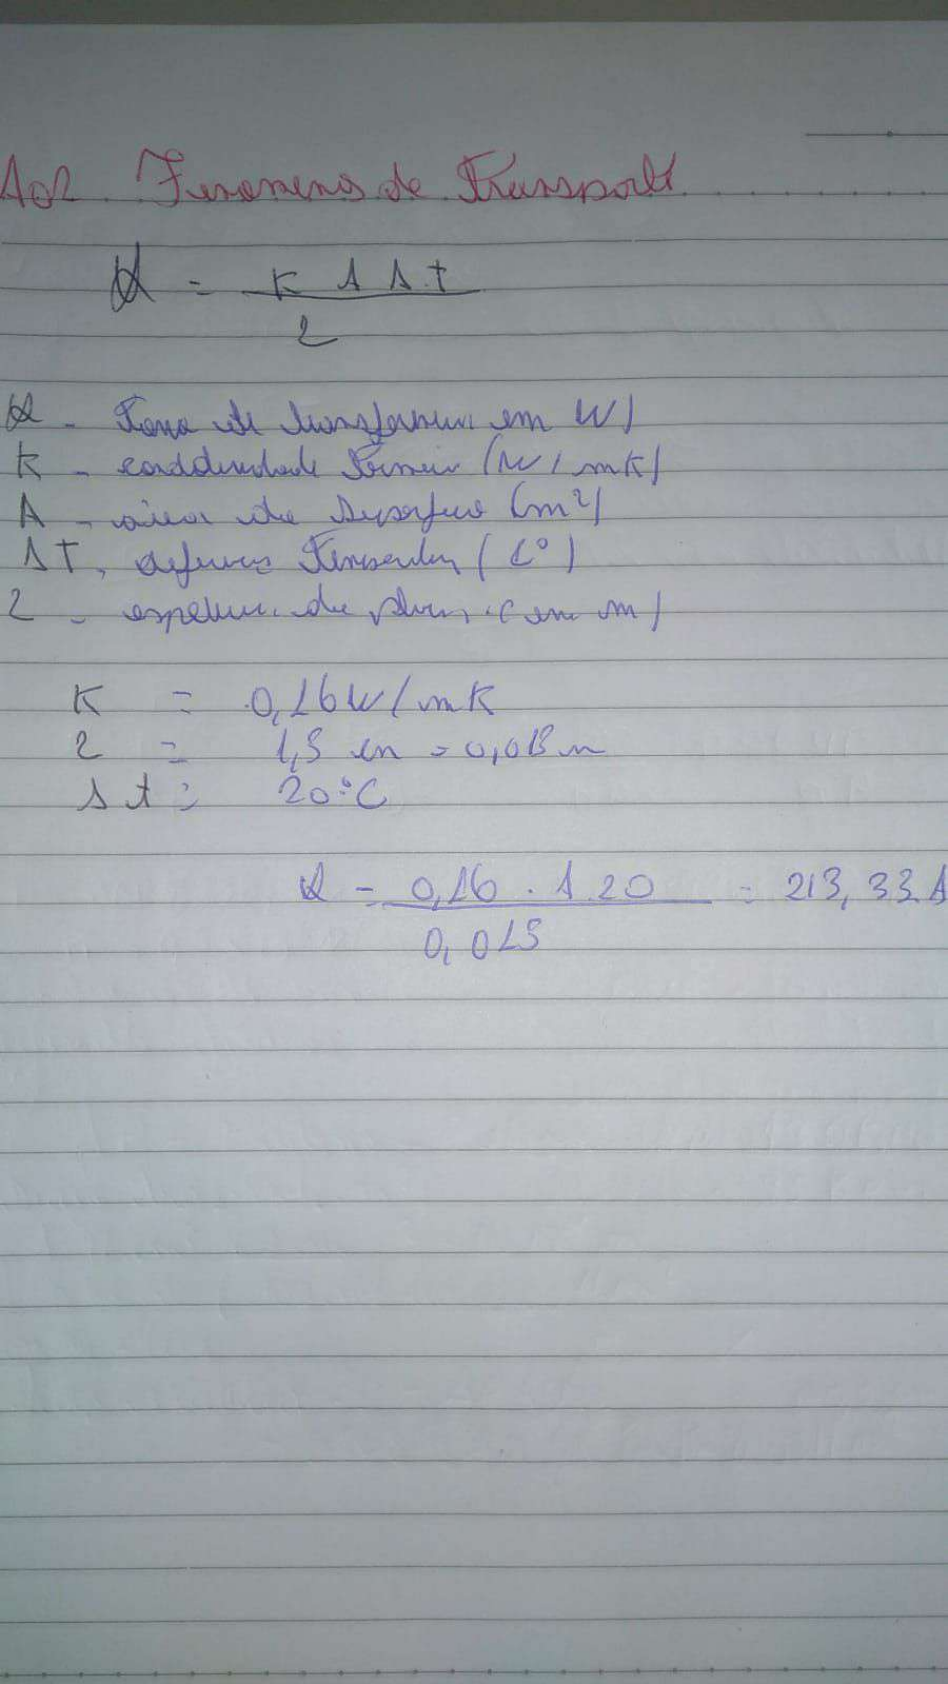 A02 Fenomeno de Transporte
Q = K A Δt
L
Q - Taxa de transferencia em W)
K - condutividade termica (W/mK)
A - área da superficie (m²)
ΔT - diferença Temperatura (C°)
L - espessura da placa (em m)
K = 0,16W/mK
L = 1,5 cm = 0,015m
Δt = 20°C
Q = 0,16 . A . 20 = 213,33 A
0,015